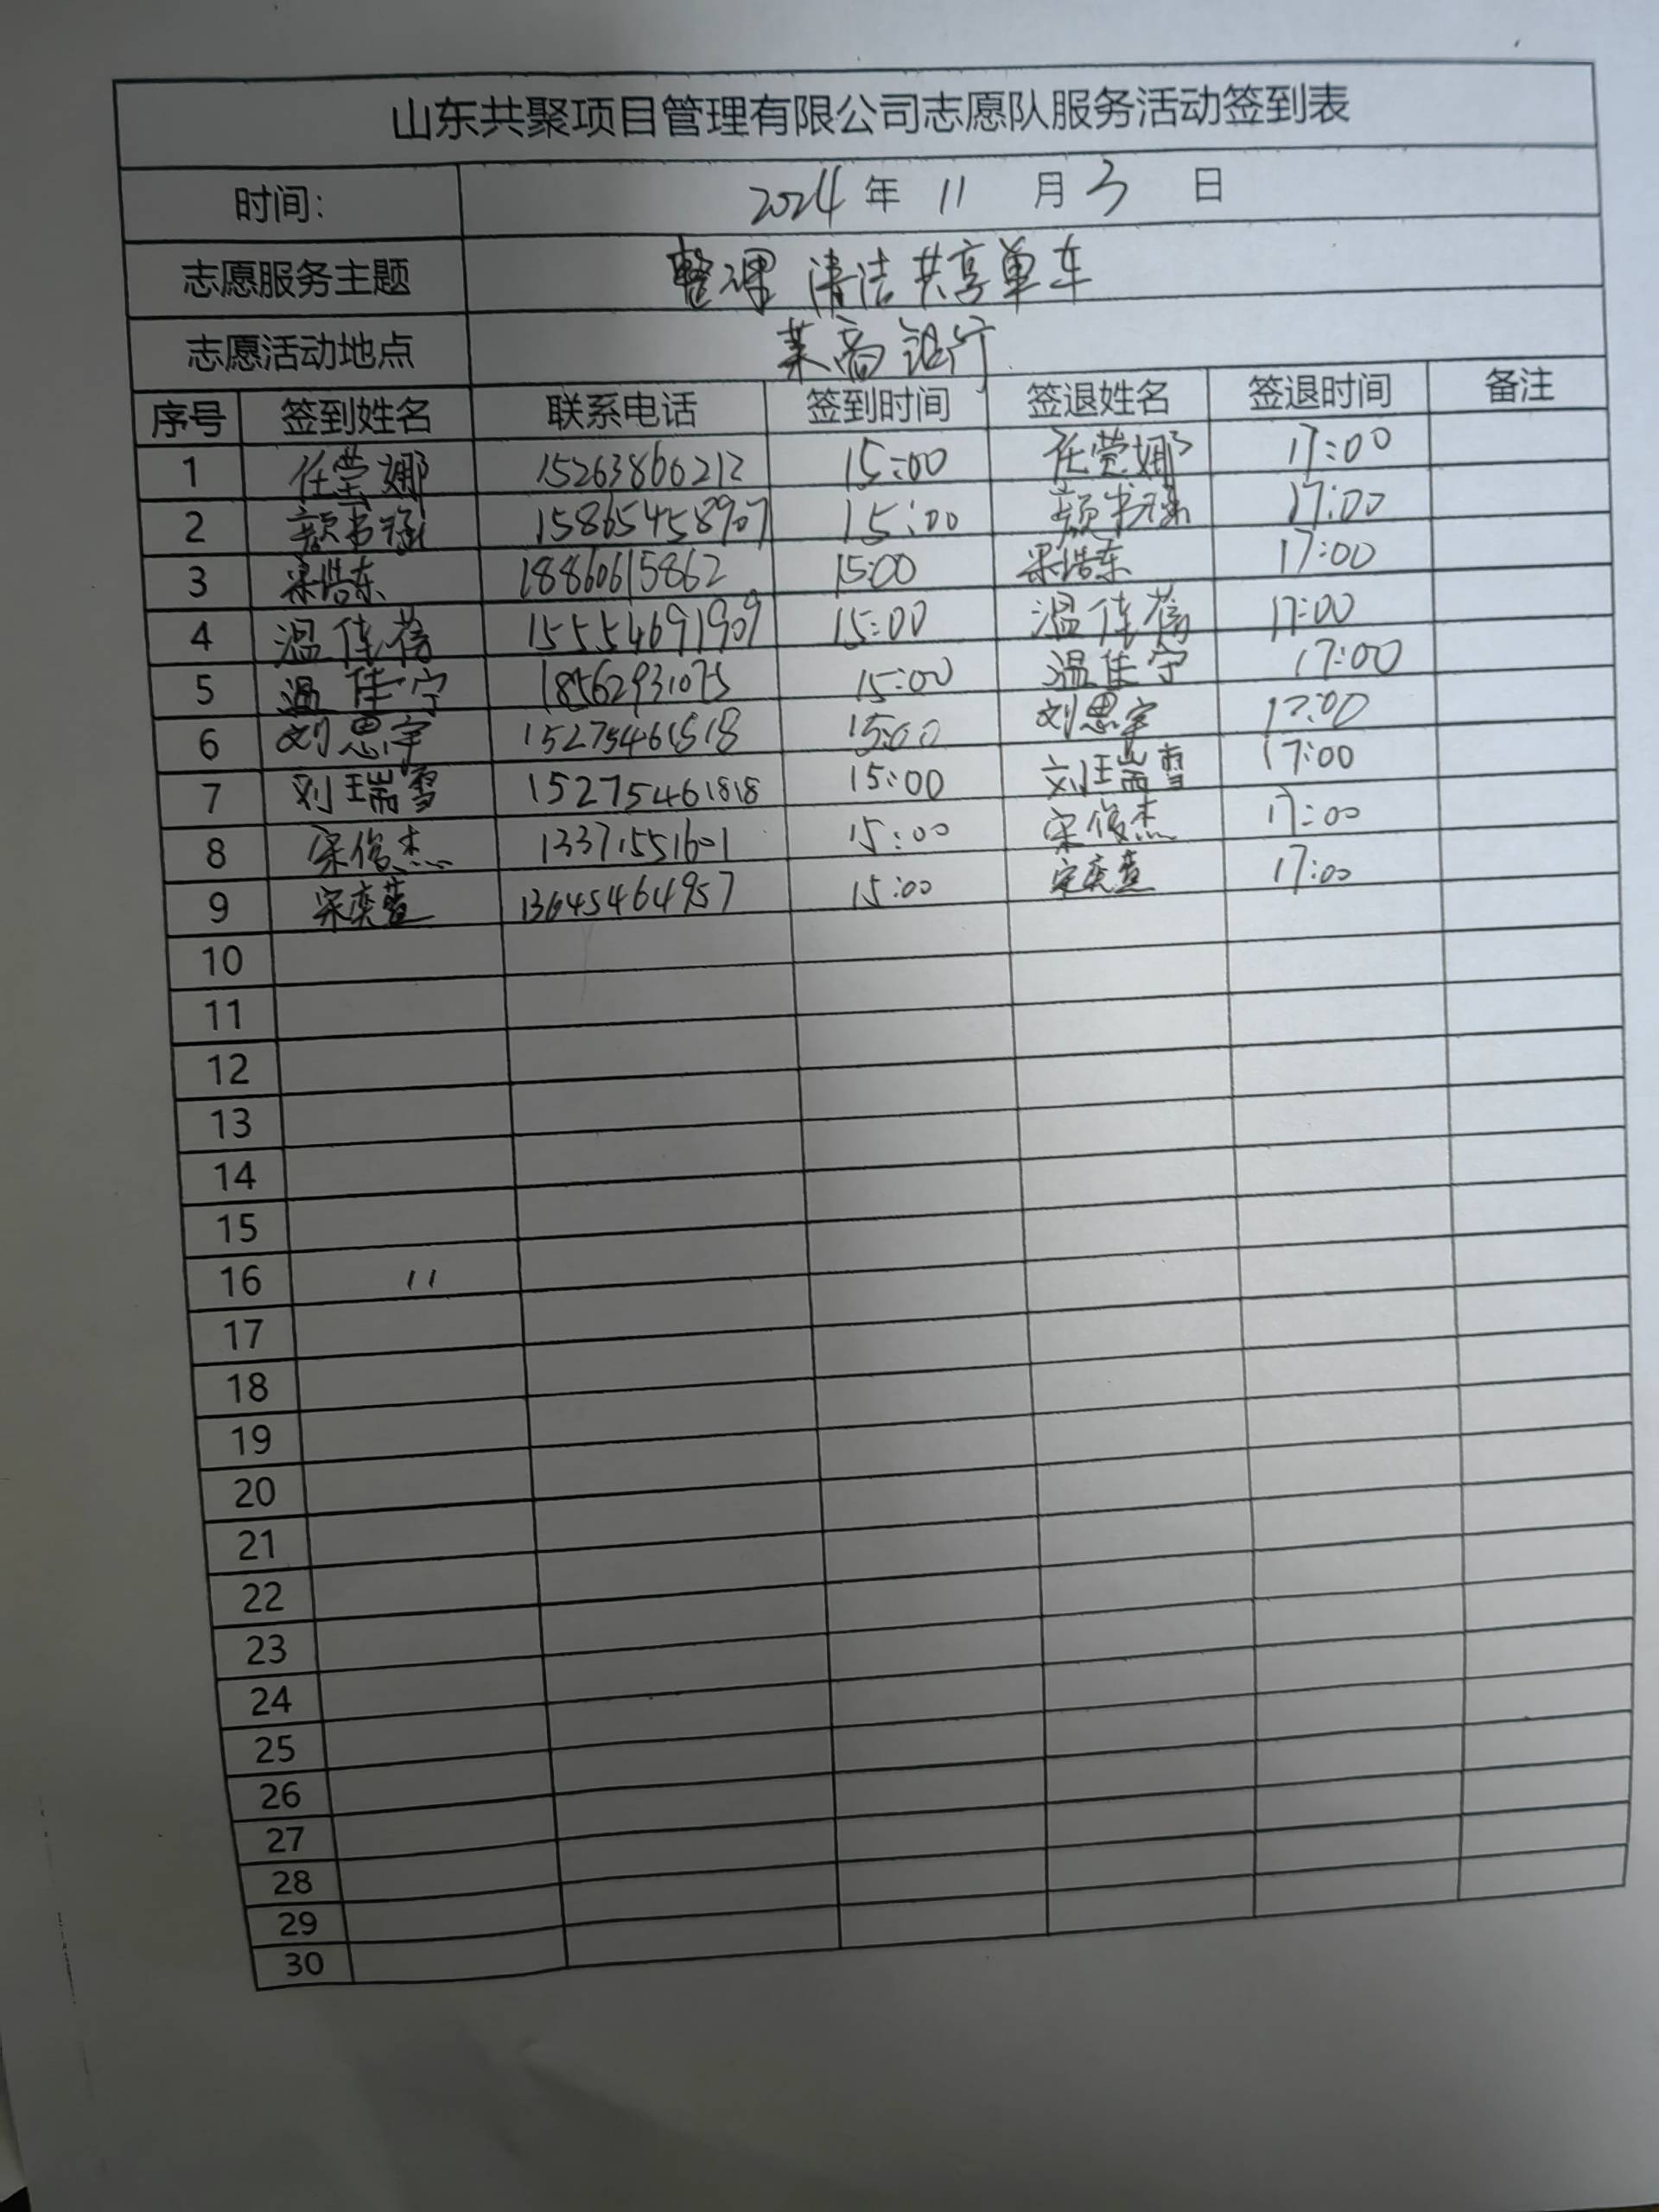 山东共聚项目管理有限公司志愿队服务活动签到表
时间: 2024 年 11 月 3 日
志愿服务主题 整理 清洁共享单车
志愿活动地点 莱商银行
序号 签到姓名 联系电话 签到时间 签退姓名 签退时间 备注
1 任莹娜 15263866212 15:00 任莹娜 17:00
2 颜书涵 15865458907 15:00 颜书涵 17:00
3 梁浩东 18860615862 15:00 梁浩东 17:00
4 温佳蓓 15554691909 15:00 温佳蓓 17:00
5 温佳宁 18562931075 15:00 温佳宁 17:00
6 刘思宇 15275461818 15:00 刘思宇 17:00
7 刘瑞雪 15275461818 15:00 刘瑞雪 17:00
8 宋俊杰 13371551601 15:00 宋俊杰 17:00
9 宋奕萱 13645464957 15:00 宋奕萱 17:00
10
11
12
13
14
15
16
17
18
19
20
21
22
23
24
25
26
27
28
29
30